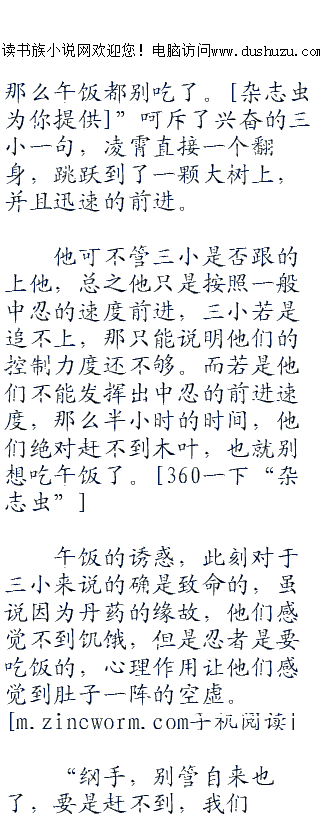 读书族小说网欢迎您！电脑访问www.dushuzu.com
那么午饭都别吃了。[杂志虫
为你提供]”呵斥了兴奋的三
小一句，凌霄直接一个翻
身，跳跃到了一颗大树上，
并且迅速的前进。
他可不管三小是否跟的
上他，总之他只是按照一般
中忍的速度前进，三小若是
追不上，那只能说明他们的
控制力度还不够。而若是他
们不能发挥出中忍的前进速
度，那么半小时的时间，他
们绝对赶不到木叶，也就别
想吃午饭了。[360一下“杂
志虫”]
午饭的诱惑，此刻对于
三小来说的确是致命的，虽
说因为丹药的缘故，他们感
觉不到饥饿，但是忍者是要
吃饭的，心理作用让他们感
觉到肚子一阵的空虚。
[m.zincworm.com手机阅读]
“纲手，别管自来也
了，要是赶不到，我们